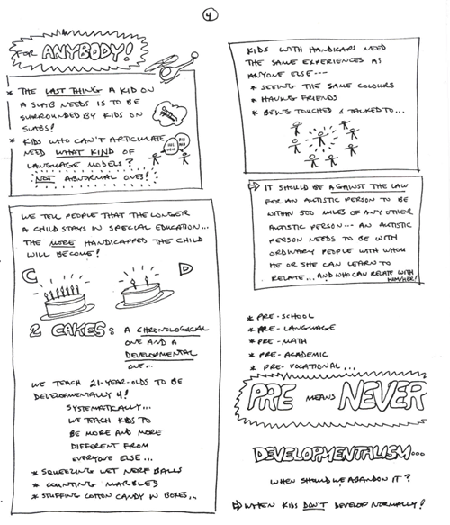 4
FOR ANYBODY!
* THE LAST THING A KID ON
A SLAB NEEDS IS TO BE
SURROUNDED BY KIDS ON
SLABS!
* KIDS WHO CAN'T ARTICULATE
NEED WHAT KIND OF
LANGUAGE MODELS?
NOT ABNORMAL ONES!
WE TELL PEOPLE THAT THE LONGER
A CHILD STAYS IN SPECIAL EDUCATION...
THE MORE HANDICAPPED THE CHILD
WILL BECOME!
C
D
2 CAKES: A CHRONOLOGICAL
ONE AND A
DEVELOPMENTAL
ONE...
WE TEACH 21-YEAR-OLDS TO BE
DEVELOPMENTALLY 4!
SYSTEMATICALLY...
WE TEACH KIDS TO
BE MORE AND MORE
DIFFERENT FROM
EVERYONE ELSE...
* SQUEEZING WET NERF BALLS
* COUNTING MARBLES
* STUFFING COTTON CANDY IN BOXES...
KIDS WITH HANDICAPS NEED
THE SAME EXPERIENCES AS
ANYONE ELSE...
* SEEING THE SAME COLOURS
* HAVING FRIENDS
* BEING TOUCHED & TALKED TO...
IT SHOULD BE AGAINST THE LAW
FOR AN AUTISTIC PERSON TO BE
WITHIN 500 MILES OF ANY OTHER
AUTISTIC PERSON... AN AUTISTIC
PERSON NEEDS TO BE WITH
ORDINARY PEOPLE WITH WHOM
HE OR SHE CAN LEARN TO
RELATE... AND WHO CAN RELATE WITH
HIM/HER!
* PRE-SCHOOL
* PRE-LANGUAGE
* PRE-MATH
* PRE-ACADEMIC
* PRE-VOCATIONAL...
PRE MEANS NEVER
DEVELOPMENTALISM...
WHEN SHOULD WE ABANDON IT?
WHEN KIDS DON'T DEVELOP NORMALLY!